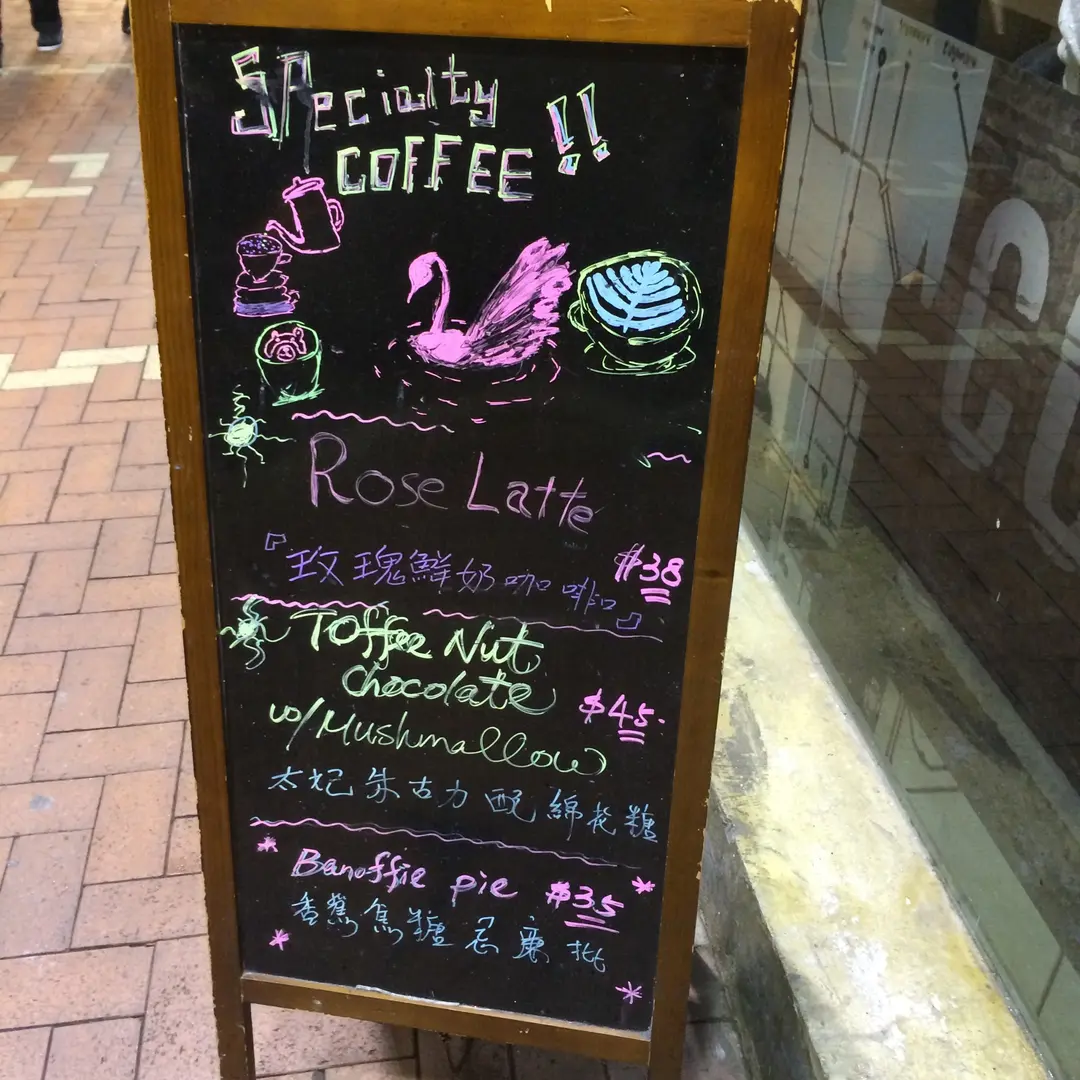 SPecialty
COFFEE!!
Rose Latte
『玫瑰鮮奶咖啡』
$38
Toffee Nut
Chocolate
w/Mushmallow
$45.
太妃朱古力配綿花糖
Banoffie pie $35
香蕉焦糖忌廉批